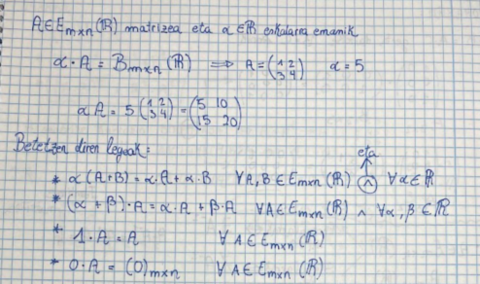 A∈E_mxn(ℝ) matrizea eta α∈ℝ eskalarra emanik
α·A = B_mxn(ℝ) ⟹ A=(1 2 / 3 4) α=5
αA = 5(1 2 / 3 4) = (5 10 / 15 20)
Betetzen diren legeak:
eta
* α(A+B)=α·A+α·B ∀A,B∈E_mxn(ℝ) ∧ ∀α∈ℝ
* (α+β)·A=α·A+β·A ∀A∈E_mxn(ℝ) ∧ ∀α,β∈ℝ
* 1·A=A ∀A∈E_mxn(ℝ)
* 0·A=(0)_mxn ∀A∈E_mxn(ℝ)